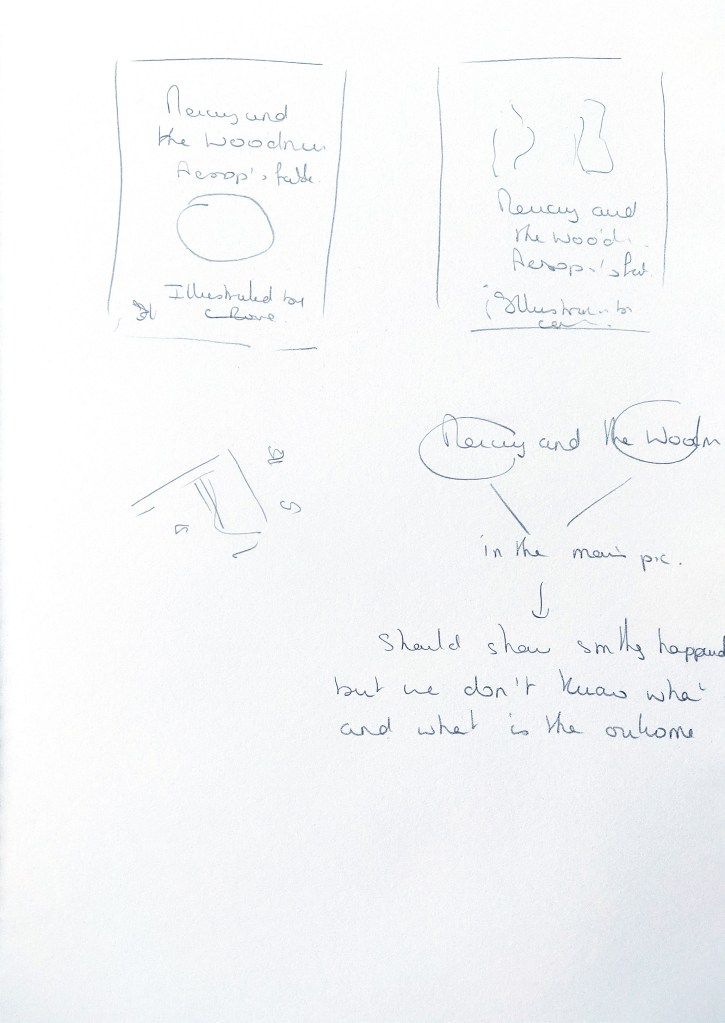 Mercury and
the Woodm
Aesop's fable.
Illustrated by
Mercury and
the Wood
Aesop's fa
Illustra by
Mercury and the Woodm
in the main pic.
Should show smthg happened
but we don't know what
and what is the outcome